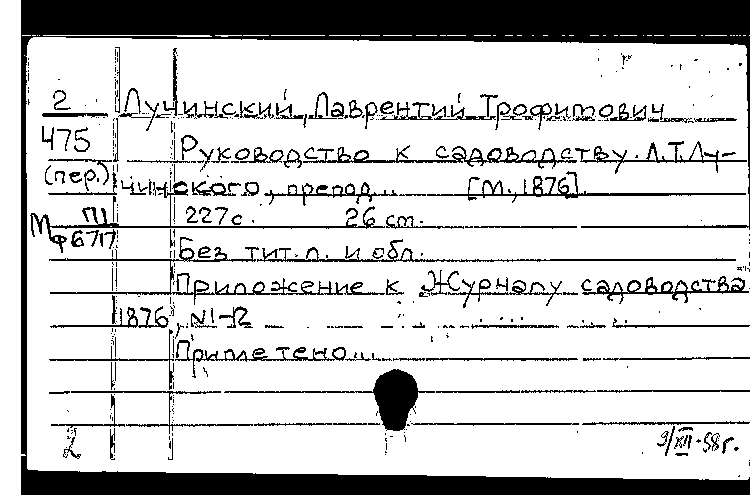 2 Лучинский, Лаврентий Трофимович
475 Руководство к садоводству. Л.Т.Лу-
(пер.) чинского, препод... [М., 1876].
227с. 26 ст.
Мф П1 6717
Без тит.л. и обл.
Приложение к Журналу садоводства
1876, №1-12
Приплетено...
2
9/XII-58г.